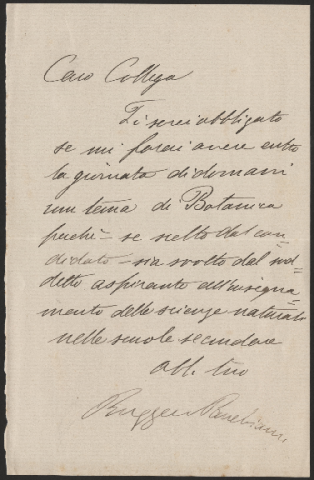 Caro Collega
Ti sarei obbligato
se mi farai avere entro
la giornata di domani
un tema di Botanica
perchè se scelto dal can=
didato sia svolto dal sud=
detto aspirante all'insegna=
mento delle scienze naturali
nelle scuole secondarie
aff. tuo
Ruggero Panebianco